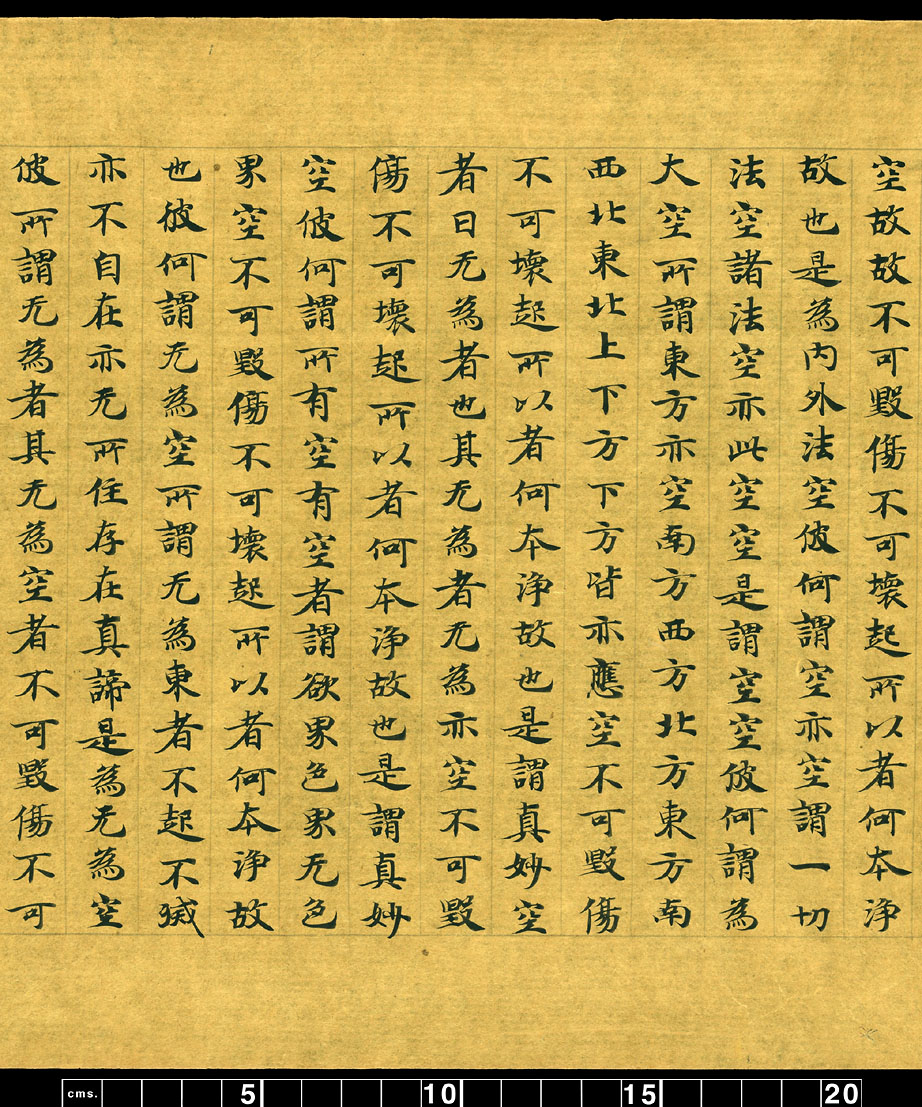 空故故不可毀傷不可壞起所以者何本淨
故也是為内外法空彼何謂空亦空謂一切
法空諸法空亦此空空是謂空空彼何謂為
大空所謂東方亦空南方西方北方東方南
西北東北上下方下方皆亦應空不可毀傷
不可壞起所以者何本淨故也是謂真妙空
者曰无為者也其无為者无為亦空不可毀
傷不可壞起所以者何本淨故也是謂真妙
空彼何謂所有空有空者謂欲界色界无色
界空不可毀傷不可壞起所以者何本淨故
也彼何謂无為空所謂无為東者不起不滅
亦不自在亦无所住存在真諦是為无為空
彼所謂无為者其无為空者不可毀傷不可
cms. 5 10 15 20